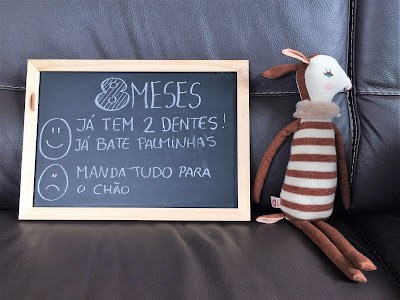 8 MESES
JÁ TEM 2 DENTES!
JÁ BATE PALMINHAS
MANDA TUDO PARA
O CHÃO